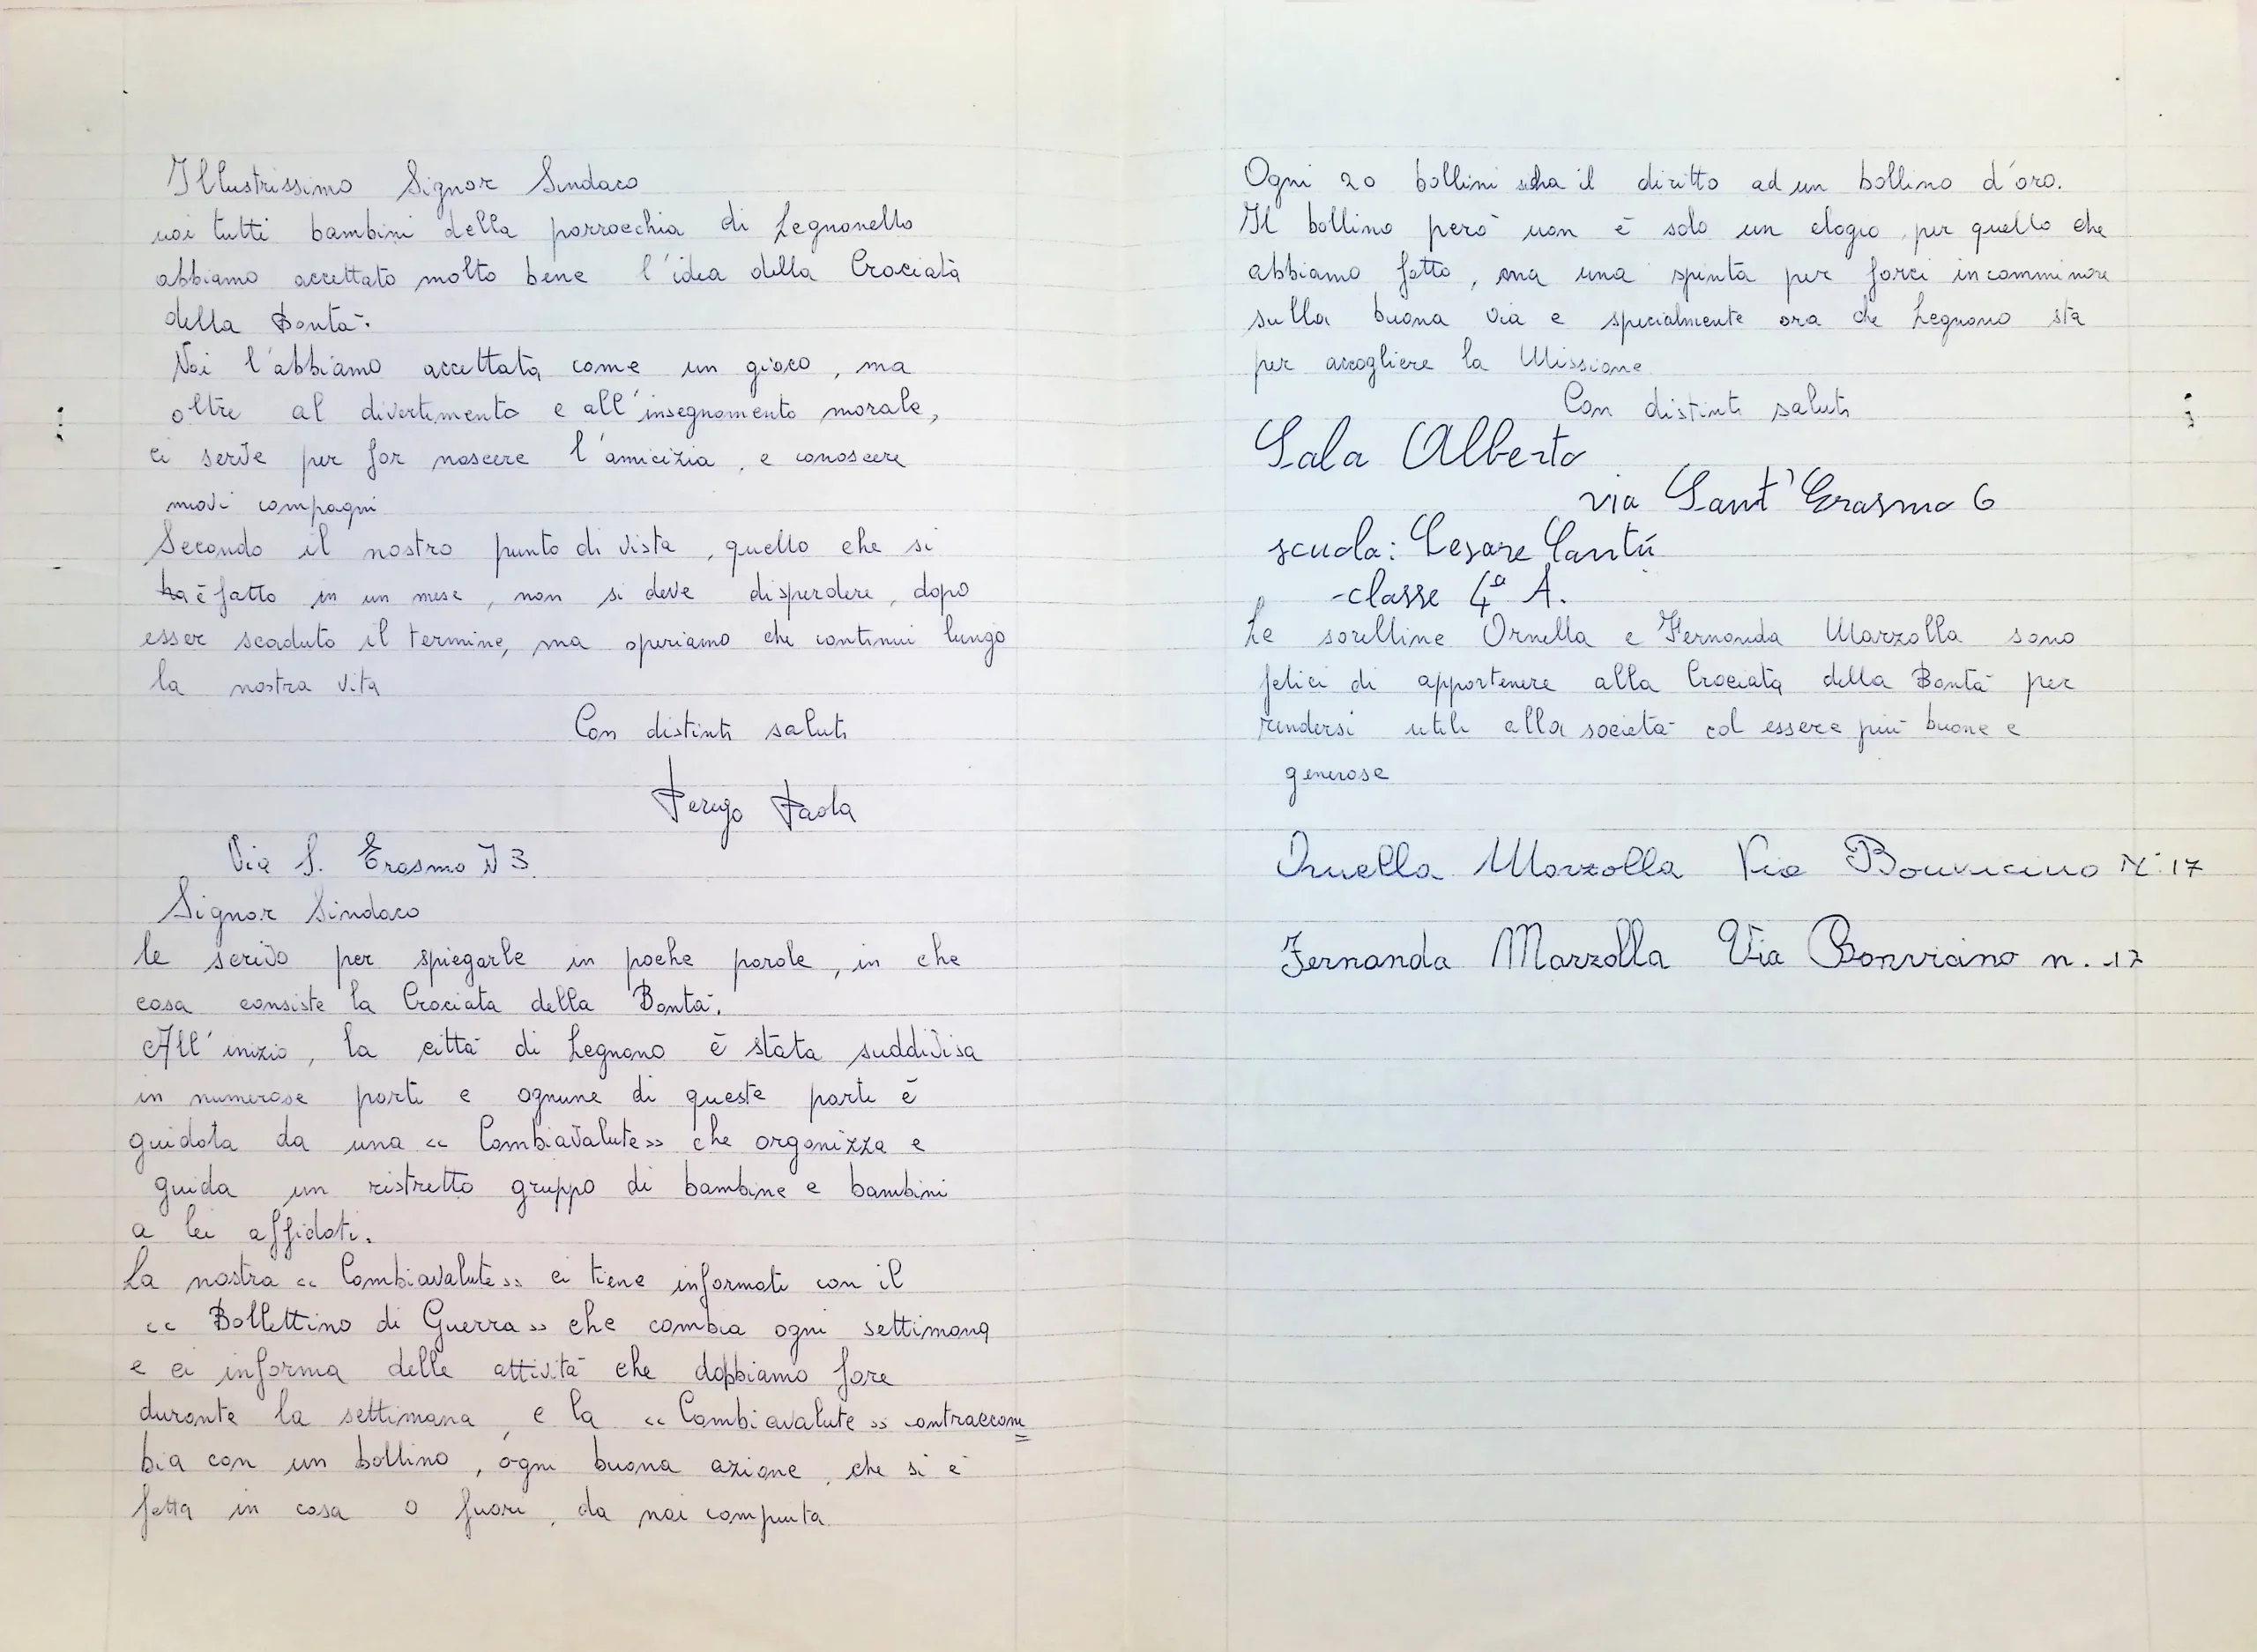 Illustrissimo Signor Sindaco
noi tutti bambini della parrocchia di Legnanello
abbiamo accettato molto bene l'idea della Crociata
della Bontà.
Noi l'abbiamo accettata come un gioco, ma
oltre al divertimento e all'insegnamento morale,
ci serve per far nascere l'amicizia, e conoscere
nuovi compagni
Secondo il nostro punto di vista, quello che si
ha è fatto in un mese, non si deve disperdere, dopo
esser scaduto il termine, ma speriamo che continui lungo
la nostra vita
Con distinti saluti
Perego Paola
Via S. Erasmo N 3.
Signor Sindaco
le scrivo per spiegarle in poche parole, in che
cosa consiste la Crociata della Bontà.
All'inizio, la città di Legnano è stata suddivisa
in numerose parti e ognune di queste parti è
guidata da una «Cambiavalute» che organizza e
guida un ristretto gruppo di bambine e bambini
a lei affidati.
La nostra «Cambiavalute» ci tiene informati con il
«Bollettino di Guerra» che cambia ogni settimana
e ci informa delle attività che dobbiamo fare
durante la settimana, e la «Cambiavalute» contraccam=
bia con un bollino, ogni buona azione, che si è
fatta in casa o fuori, da noi compiuta
Ogni 20 bollini si ha il diritto ad un bollino d'oro.
Il bollino però non è solo un elogio per quello che
abbiamo fatto, ma una spinta per farci incamminare
sulla buona via e specialmente ora che Legnano sta
per accogliere la Missione
Con distinti saluti
Sala Alberto
via Sant'Erasmo 6
scuola: Cesare Cantù
-classe 4ª A.
Le sorelline Ornella e Fernanda Marzolla sono
felici di appartenere alla Crociata della Bontà per
rendersi utili alla società col essere più buone e
generose
Ornella Marzolla Via Bonvicino N. 17
Fernanda Marzolla Via Bonvicino n. 17